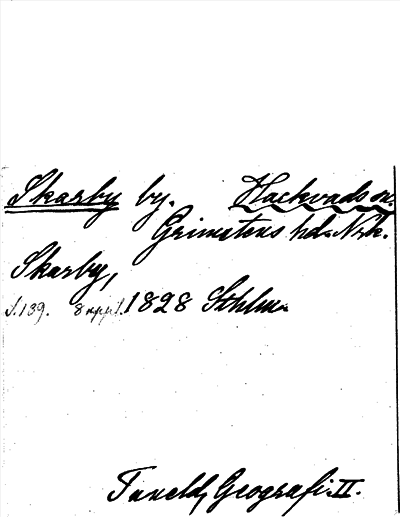 Skarby by. Hackvads sn.
Grimstens hd. Nrk.
Skarby,
S. 139. 8 uppl. 1828 Sthlm.
Tuneld, Geografi. II.